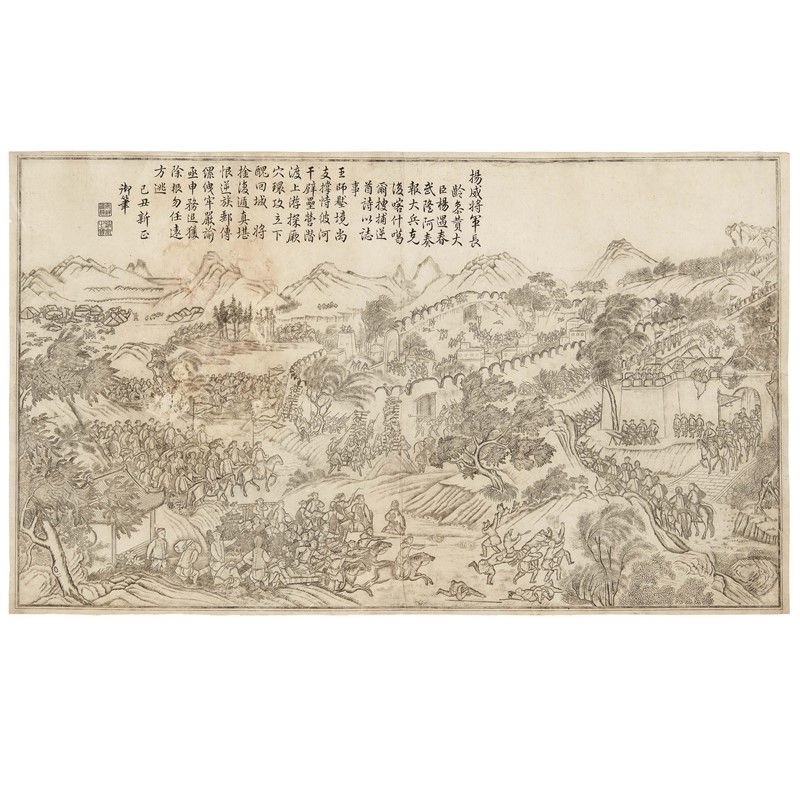 揚威將軍長
齡參贊大
臣楊遇春
武隆阿奏
報大兵克
復喀什噶
爾搜捕逆
酋詩以誌
事
王師壓境尚
支撐恃彼河
干壘營潛
渡上游探厥
穴環攻立下
醜回城 將
擒復遁真堪
恨逆族郵傳
牢嚴諭
亟申務追獲
除根勿任遠
方逃
己丑新正
御筆